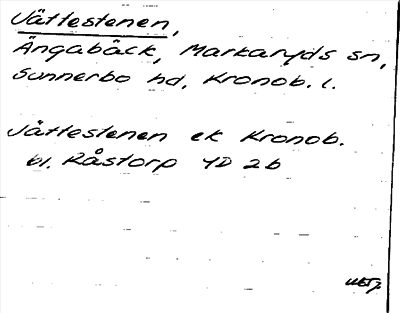 Jättestenen,
Ängabäck, Markaryds sn,
Sunnerbo hd, Kronob. l.
Jättestenen ek Kronob.
bl. Råstorp 4D 2b